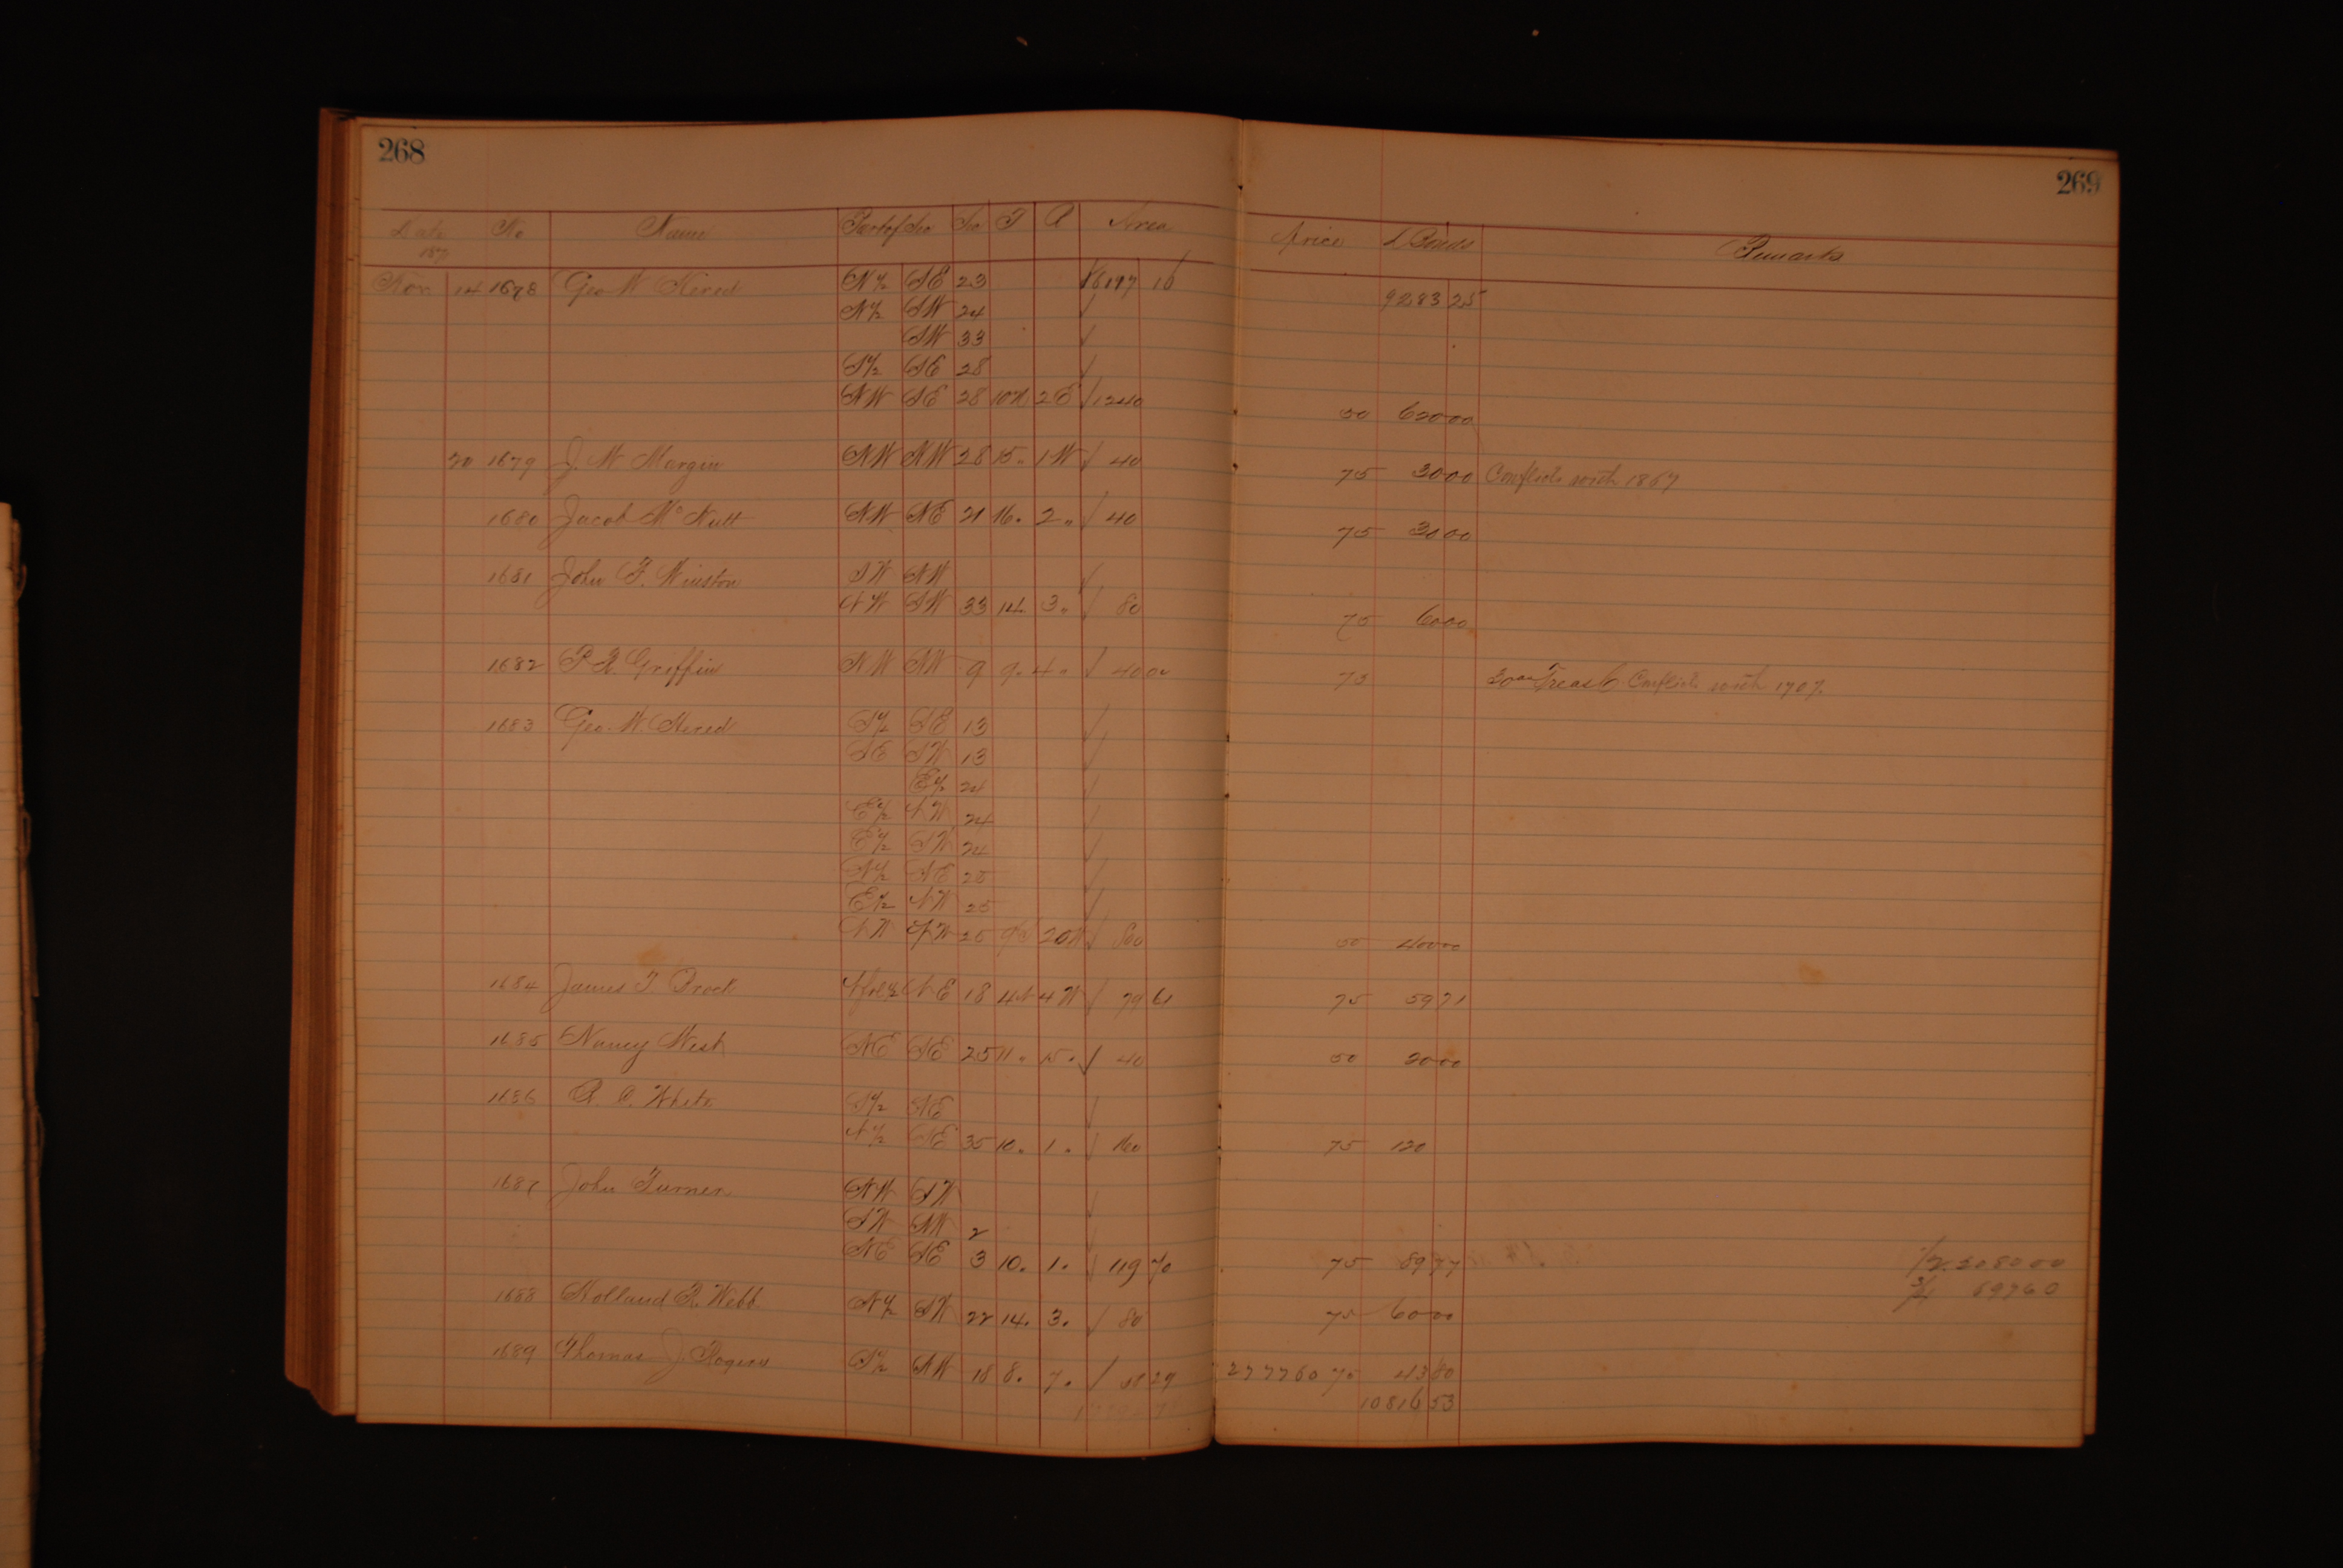 268
269
Date No Name Part of Sec Sec T R Area Price Bonds Remarks
187
Nov 14 1678 Geo W N½ SE 23 16197 16 9283 25
N½ SW 24
SW 33
S½ SE 28
NW SE 28 10 N 2 E 1240 50 620 00
20 1679 J. W. Morgin NW NW 28 15 " 1 W 40 75 30 00 Conflicts with 1867
1680 Jacob McNutt NW NE 21 16 " 2 " 40 75 30 00
1681 John F. Winston SW NW
NW SW 33 14 " 3 " 80 75 60 00
1682 Griffin NW 9 9 " 4 " 40 00 75 30 00 Treas C Conflicts with 1707
1683 Geo. W. S½ SE 13
SE SW 13
E½ 24
E½ NW 24
E½ SW 24
N½ NE 25
E½ NW 25
NW 25 9 20 W 800 50 400 00
1684 James T NE 18 4 N 4 W 79 61 75 59 71
1685 Nancy West NE SE 25 11 " 15 " 40 50 20 00
1686 R. C. White S½ NE
N½ SE 35 10 " 1 " 160 75 120
1687 John Turner NW SW
SW NW 2
NE SE 3 10 " 1 " 119 70 75 89 77
½ 2080 00
¾ 697 60
1688 Holland R. Webb N½ SW 22 14 " 3 " 80 75 60 00
1689 Thomas J. Rogers S½ NW 18 8 " 7 " 2777 60 75 43 80
10816 53